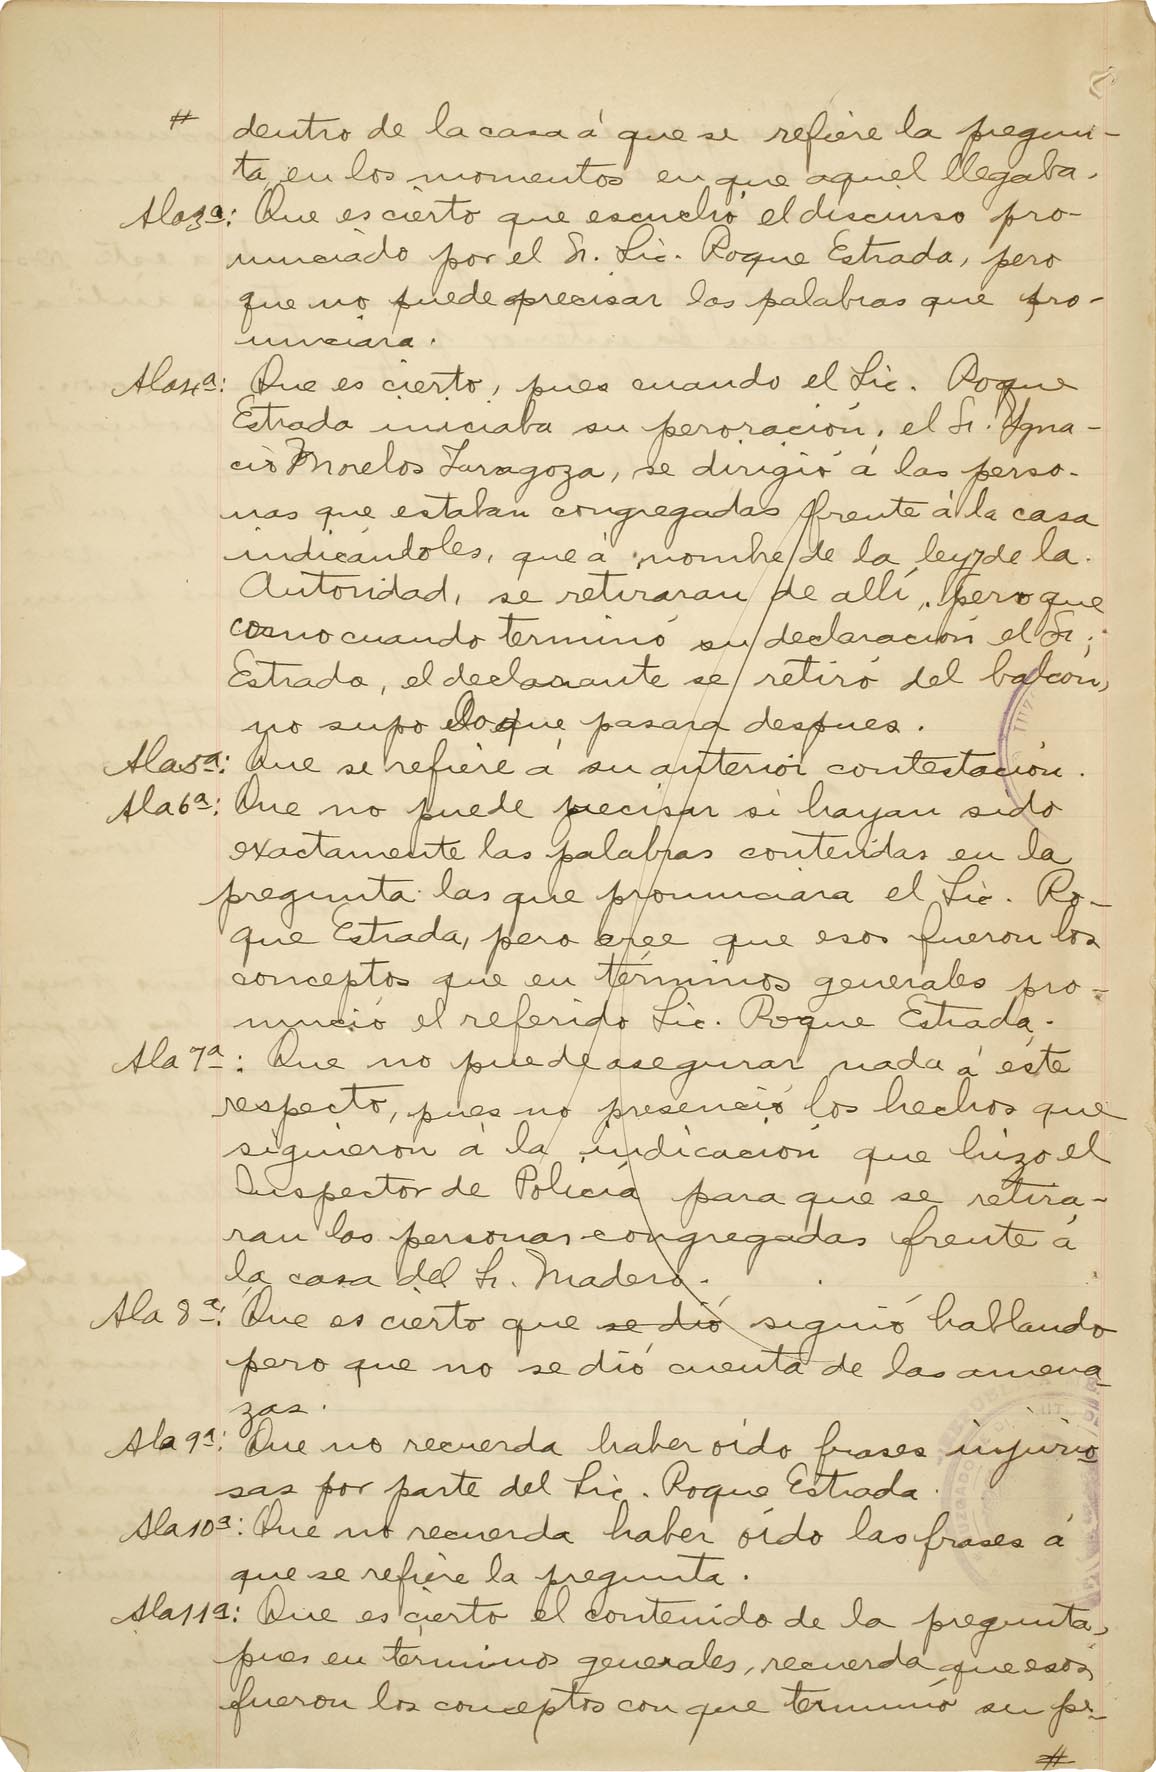 # dentro de la casa á que se refiere la pregun-
ta, en los momentos en que aquel llegaba.
A la 3ª: Que es cierto que escuchó el discurso pro-
nunciado por el Sr. Lic. Roque Estrada, pero
que no puede precisar las palabras que pro-
nunciara.
A la 4ª: Que es cierto, pues cuando el Lic. Roque
Estrada iniciaba su peroración, el Sr. Igna-
cio Morelos Zaragoza, se dirigió á las perso-
nas que estaban congregadas frente á la casa
indicándoles, que á nombre de la ley y de la
Autoridad, se retiraran de allí, pero que
como cuando terminó su declaración el Sr.
Estrada, el declarante se retiró del balcón,
no supo lo que pasara despues.
A la 5ª: Que se refiere á su anterior contestación.
A la 6ª: Que no puede precisar si hayan sido
exactamente las palabras contenidas en la
pregunta las que pronunciara el Lic. Ro-
que Estrada, pero cree que esos fueron los
conceptos que en términos generales pro-
nunció el referido Lic. Roque Estrada.
A la 7ª: Que no puede asegurar nada á éste
respecto, pues no presenció los hechos que
siguieron á la indicación que hizo el
Inspector de Policía para que se retira-
ran las personas congregadas frente á
la casa del Sr. Madero.
A la 8ª: Que es cierto que se dió siguió hablando
pero que no se dió cuenta de las amena-
zas.
A la 9ª: Que no recuerda haber oído frases injurio
sas por parte del Lic. Roque Estrada.
A la 10ª: Que no recuerda haber oído las frases á
que se refiere la pregunta.
A la 11ª: Que es cierto el contenido de la pregunta,
pues en terminos generales, recuerda que esos
fueron los conceptos con que terminó su pe-
#